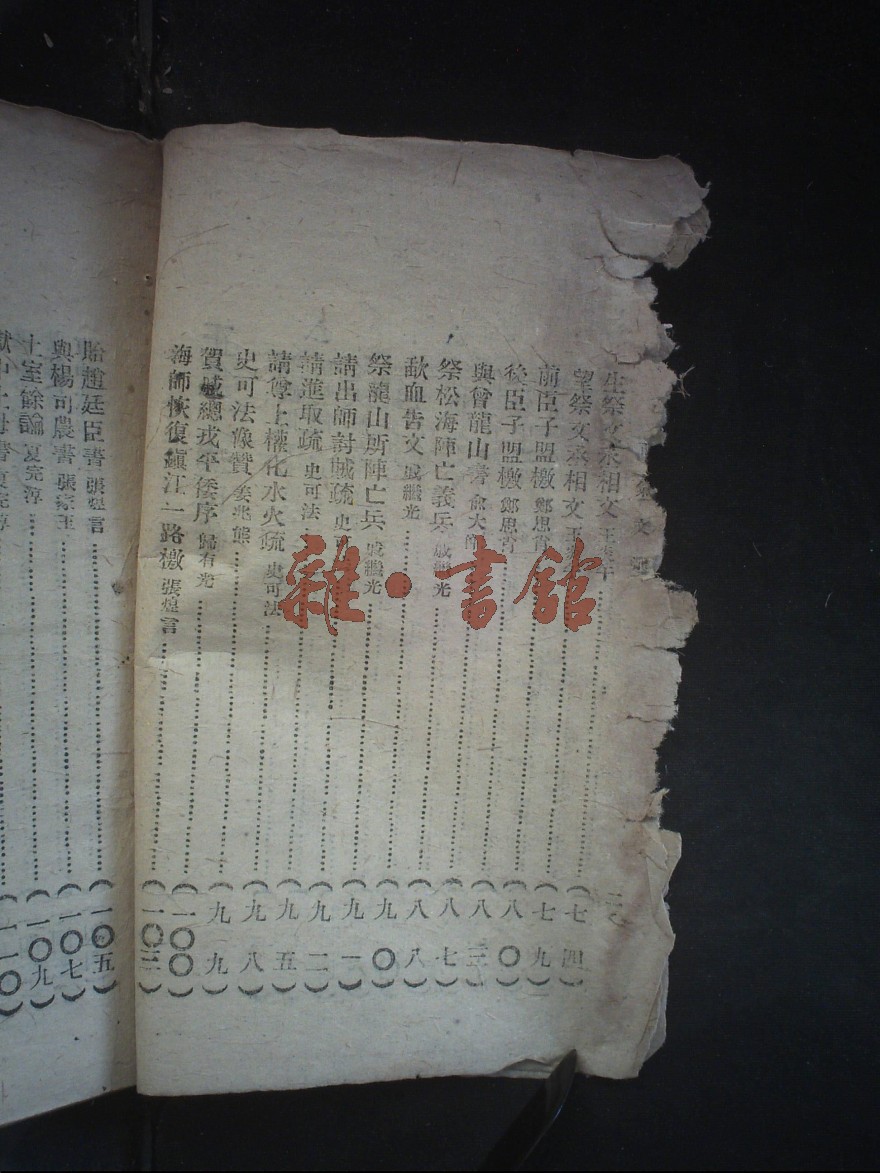 生祭文丞相文 王炎午……(七四)
望祭文丞相文 王炎午……(七九)
前臣子盟檄 鄭思肖……(八〇)
後臣子盟檄 鄭思肖……(八三)
與曾龍山書 俞大猷……(八七)
祭松海陣亡義兵 戚繼光……(八八)
歃血告文 戚繼光……(九〇)
祭龍山所陣亡兵 戚繼光……(九一)
請出師討賊疏 史……(九二)
請進取疏 史可法……(九五)
請尊上權化水火疏 史可法……(九八)
史可法像贊 姜兆熊……(九九)
賀戚總戎平倭序 歸有光……(一〇〇)
海師恢復鎮江一路檄 張煌言……(一〇三)
貽趙廷臣書 張煌言……(一〇五)
與楊司農書 張家玉……(一〇七)
土室餘論 夏完淳……(一〇九)
獄中上母書 夏完淳……(一一〇)
雜·書館